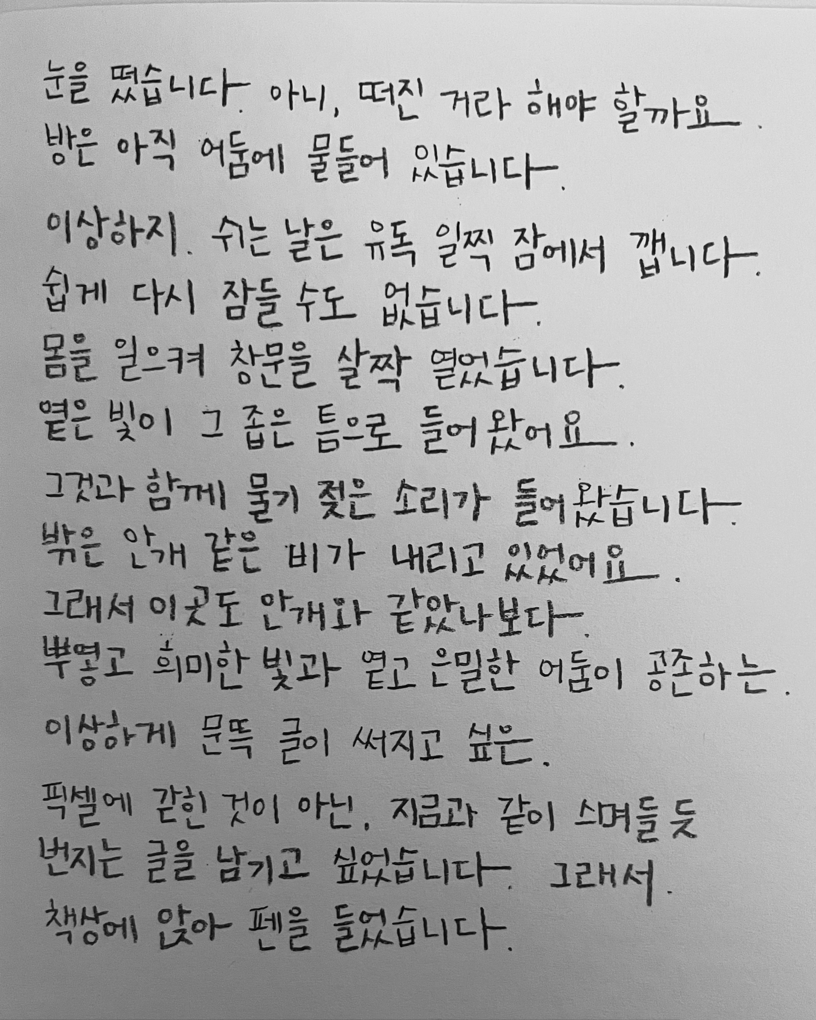 눈을 떴습니다. 아니, 떠진 거라 해야 할까요.
방은 아직 어둠에 물들어 있습니다.
이상하지. 쉬는 날은 유독 일찍 잠에서 깹니다.
쉽게 다시 잠들 수도 없습니다.
몸을 일으켜 창문을 살짝 열었습니다.
옅은 빛이 그 좁은 틈으로 들어왔어요.
그것과 함께 물기 젖은 소리가 들어왔습니다.
밖은 안개 같은 비가 내리고 있었어요.
그래서 이곳도 안개와 같았나보다.
뿌옇고 희미한 빛과 옅고 은밀한 어둠이 공존하는.
이상하게 문뜩 글이 써지고 싶은.
픽셀에 갇힌 것이 아닌, 지금과 같이 스며들 듯
번지는 글을 남기고 싶었습니다. 그래서.
책상에 앉아 펜을 들었습니다.